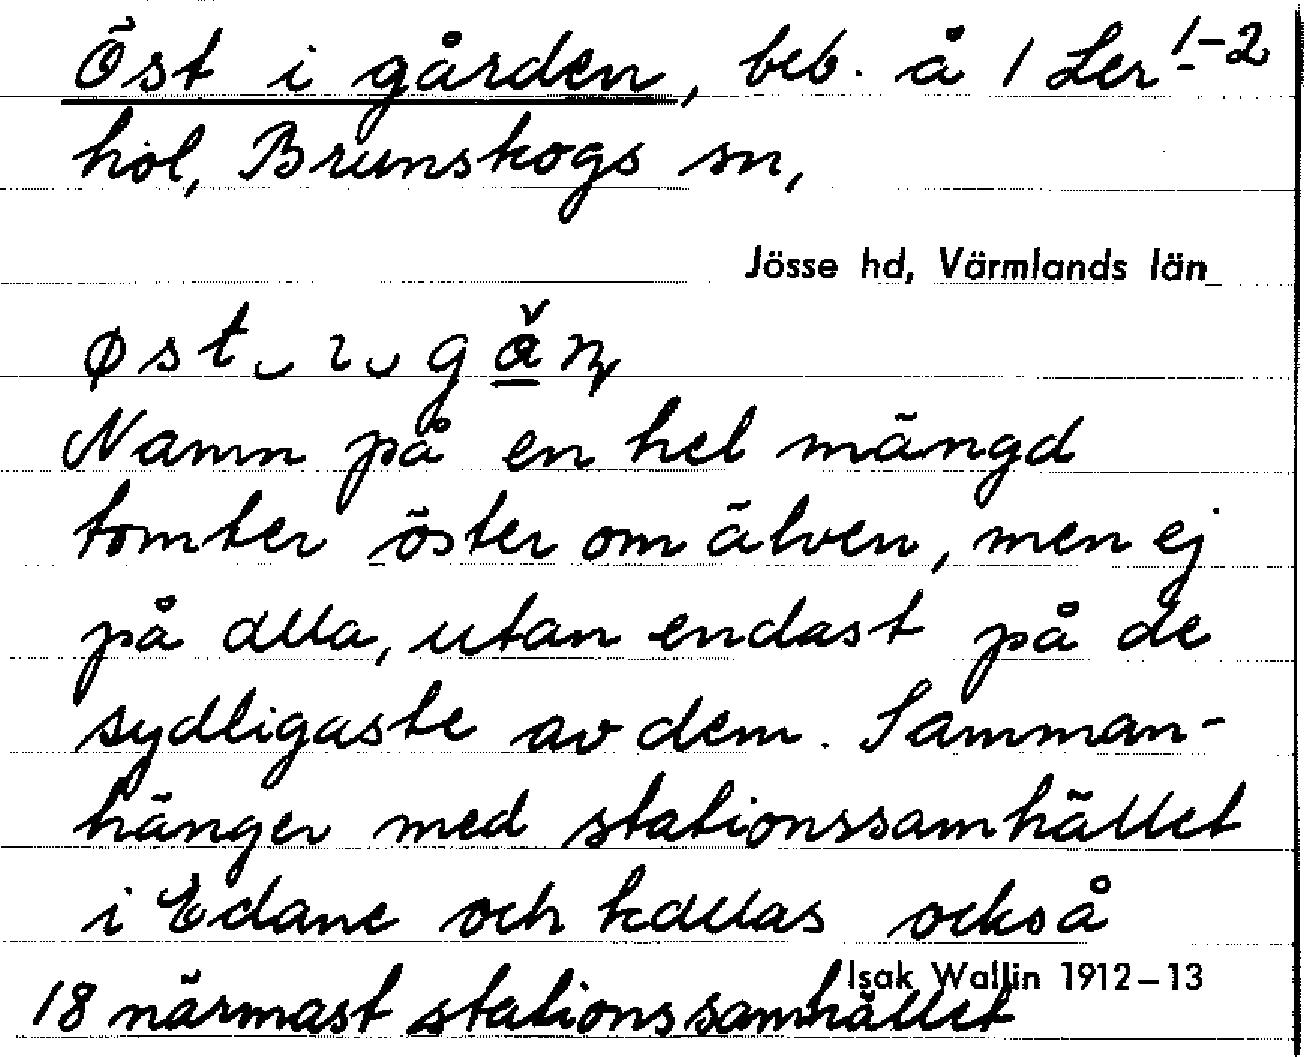 Öst i gården, beb. å 1 Ler 1-2
hol, Brunskogs sn,
Jösse hd, Värmlands län
Namn på en hel mängd
tomter öster om älven, men ej
på alla, utan endast på de
sydligaste av dem. Samman-
hänger med stationssamhället
i Edane och kallas också
Isak Wallin 1912–13
18 närmast stationssamhället